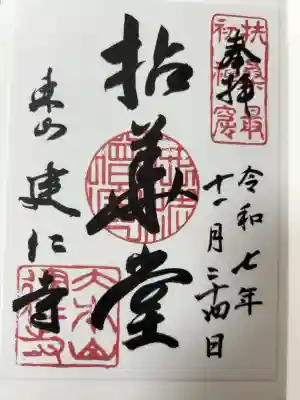 扶桑最
初禅窟
奉拝
令和七年
十一月二十四日
拈華堂
東山 建仁寺
大本山